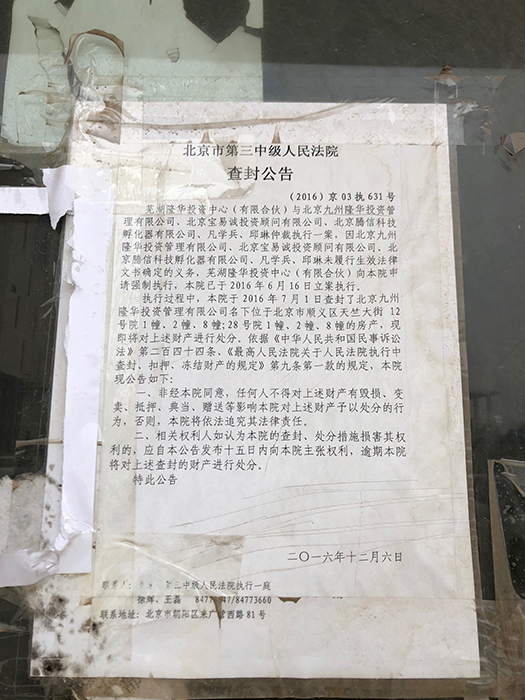 北京市第三中级人民法院
查封公告
（2016）京 03 执 631 号
芜湖隆华投资中心（有限合伙）与北京九州隆华投资管
理有限公司、北京宝易诚投资顾问有限公司、北京腾信科技
孵化器有限公司、凡学兵、邱琳仲裁执行一案，因北京九州
隆华投资管理有限公司、北京宝易诚投资顾问有限公司、北
京腾信科技孵化器有限公司、凡学兵、邱琳未履行生效法律
文书确定的义务，芜湖隆华投资中心（有限合伙）向本院申
请强制执行，本院已于 2016 年 6 月 16 日立案执行。
执行过程中，本院于 2016 年 7 月 1 日查封了北京九州
隆华投资管理有限公司名下位于北京市顺义区天竺大街 12
号院 1 幢、2 幢、8 幢;28 号院 1 幢、2 幢、8 幢的房产，现
即将对上述财产进行处分。依据《中华人民共和国民事诉讼
法》第二百四十四条、《最高人民法院关于人民法院执行中
查封、扣押、冻结财产的规定》第九条第一款的规定，本院
现公告如下：
一、非经本院同意，任何人不得对上述财产有毁损、变
卖、抵押、典当、赠送等影响本院对上述财产予以处分的行
为，否则，本院将依法追究其法律责任。
二、相关权利人如认为本院的查封、处分措施损害其权
利的，应自本公告发布十五日内向本院主张权利，逾期本院
将对上述查封的财产进行处分。
特此公告
二〇一六年十二月六日
联系人： 第三中级人民法院执行一庭
徐辉、王磊 847 47/84773660
联系地址：北京市朝阳区来广营西路 81 号